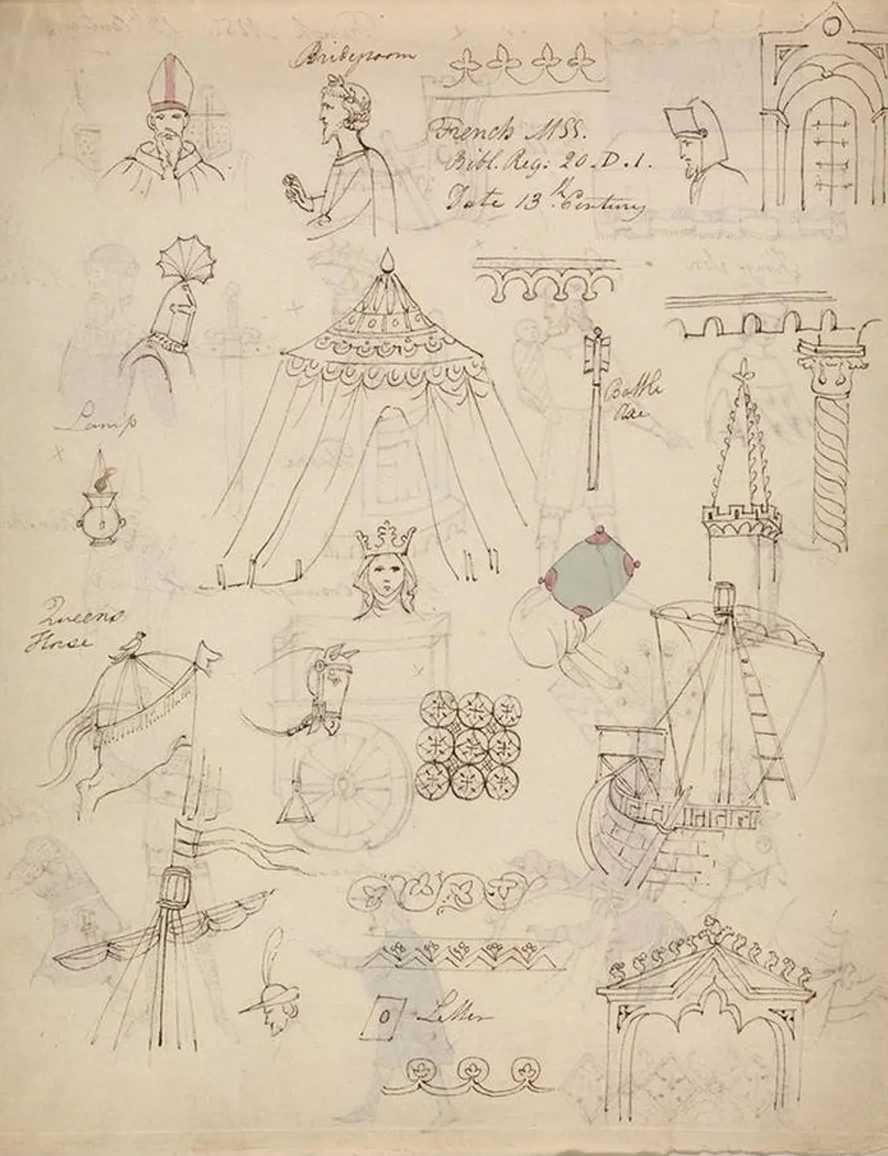 Bridegroom
French MSS.
Bibl. Reg: 20.D.1.
Date 13th Century
Battle
Axe
Lamp
Queens
Horse
Letter